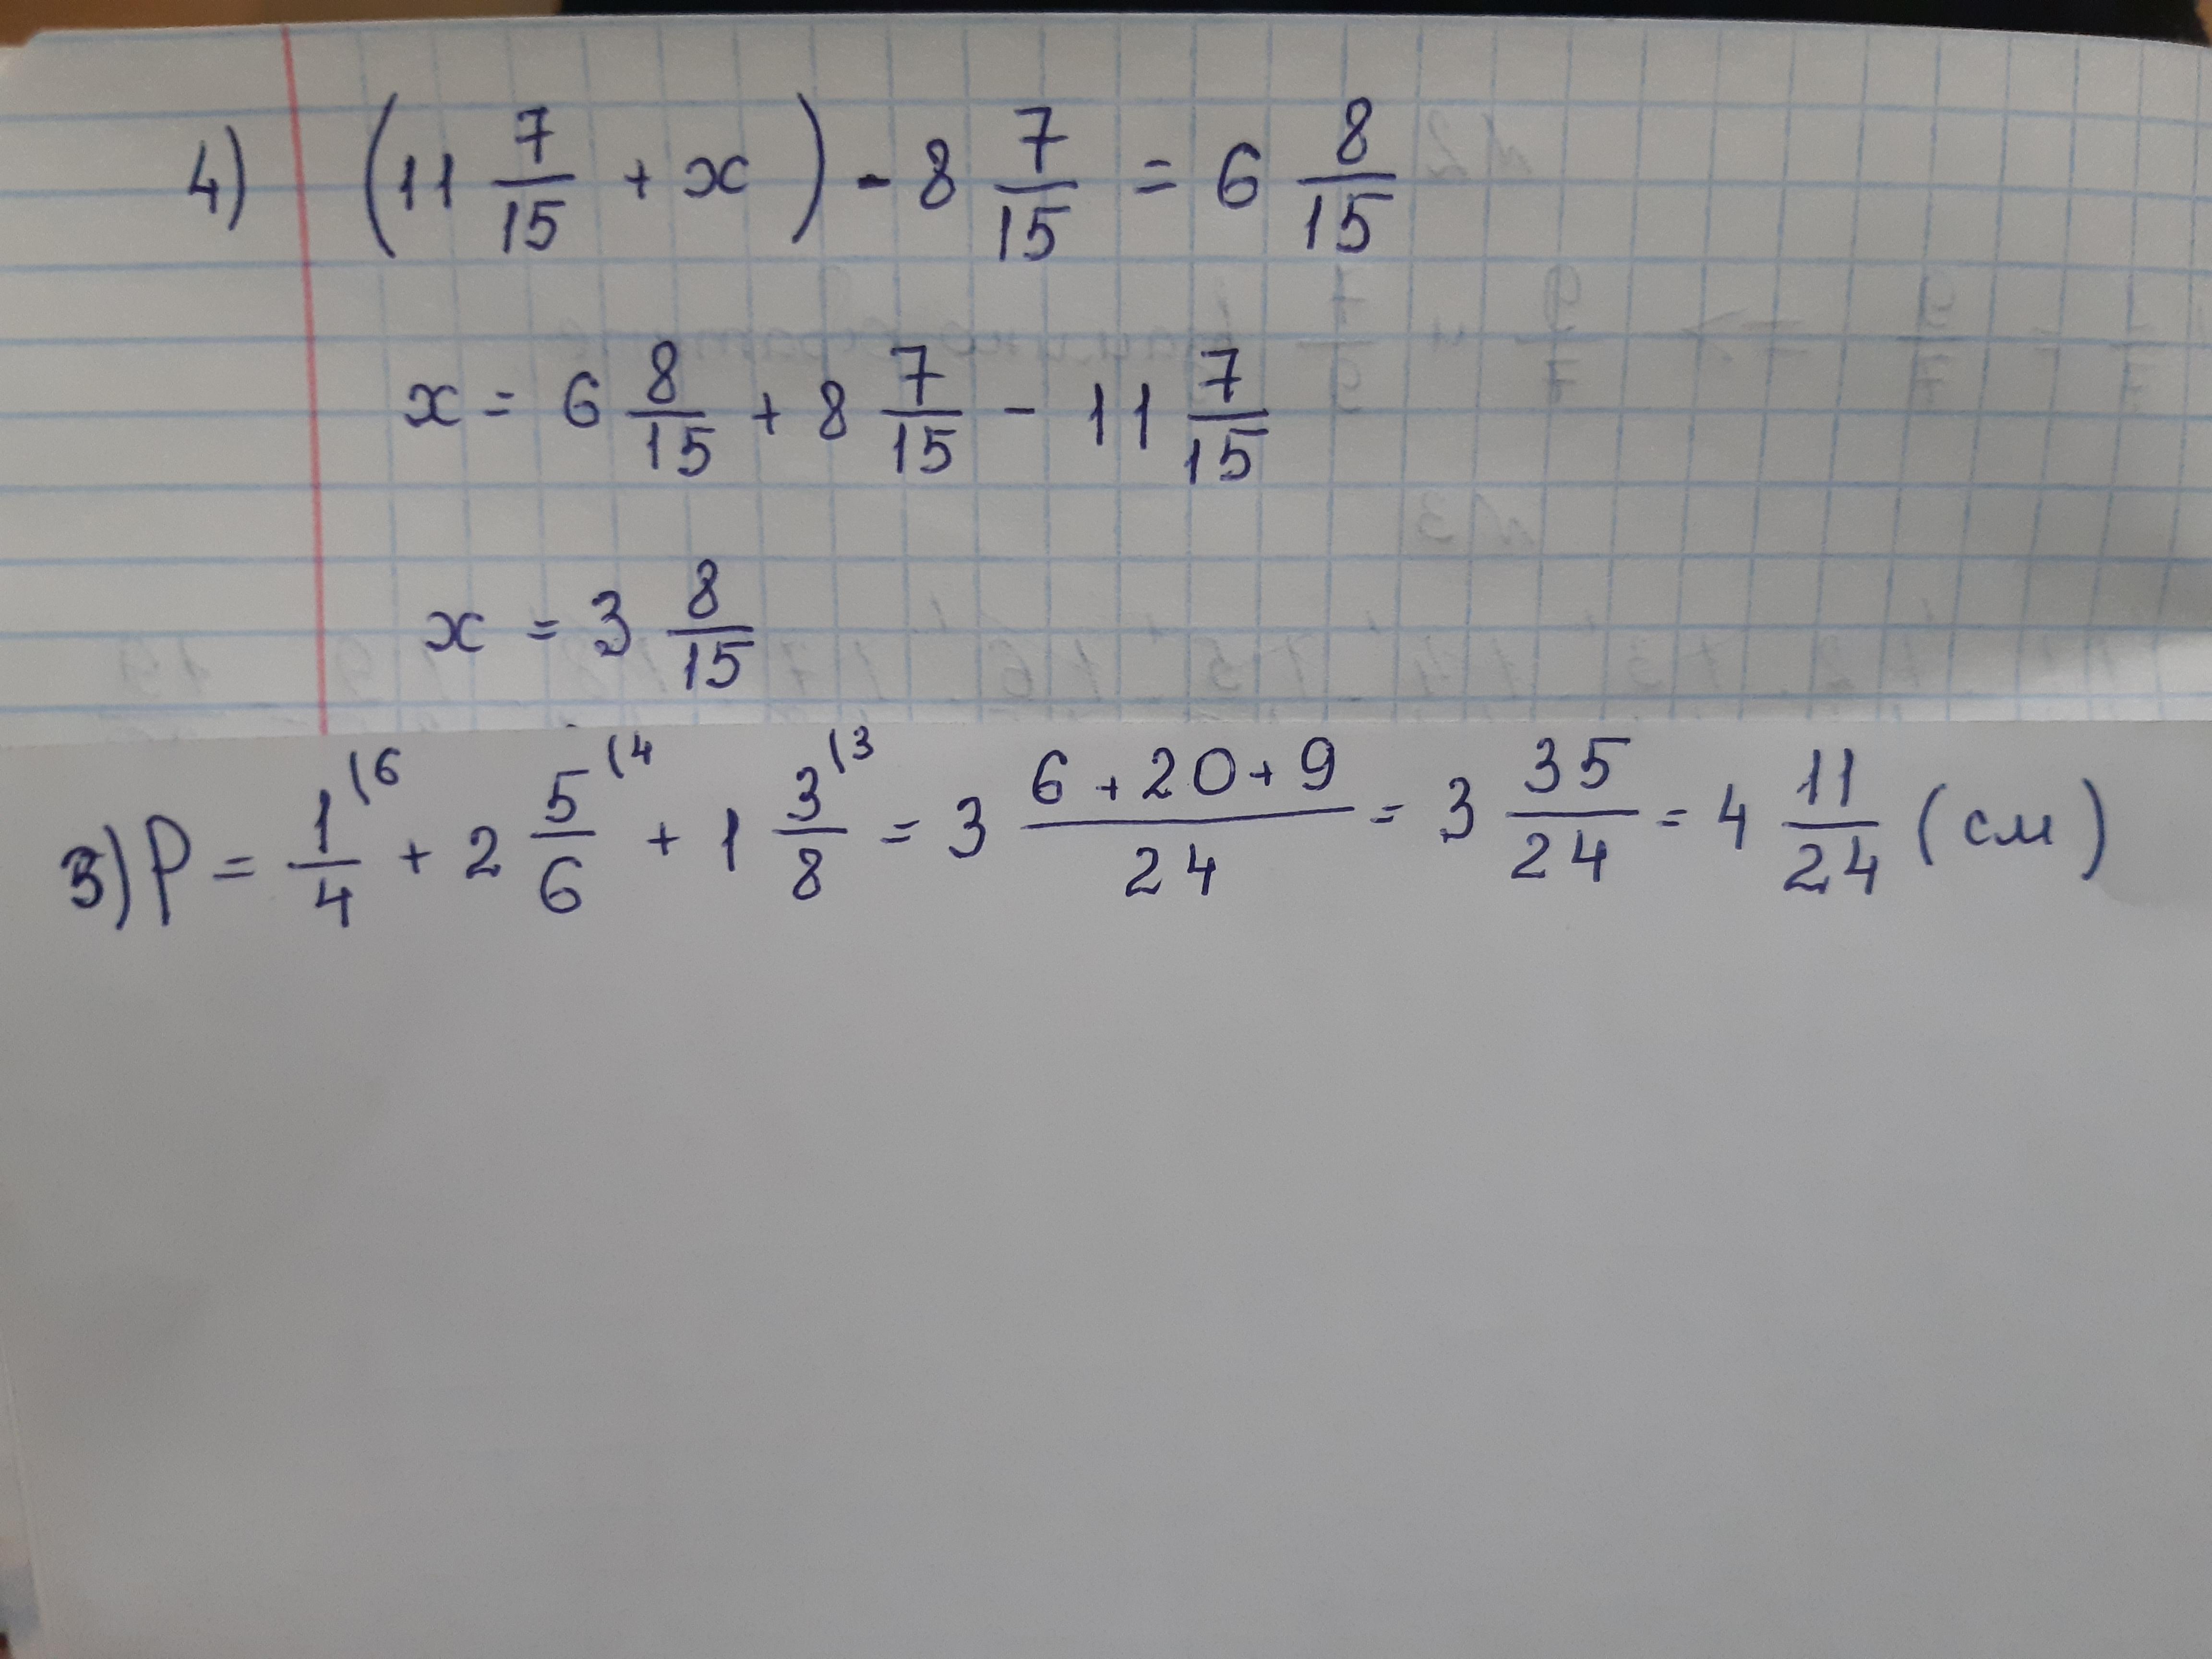 4) (11 7/15 + x) - 8 7/15 = 6 8/15
x = 6 8/15 + 8 7/15 - 11 7/15
x = 3 8/15
3) P = 1/4 \6 + 2 5/6 \4 + 1 3/8 \3 = 3 (6+20+9)/24 = 3 35/24 = 4 11/24 (см)